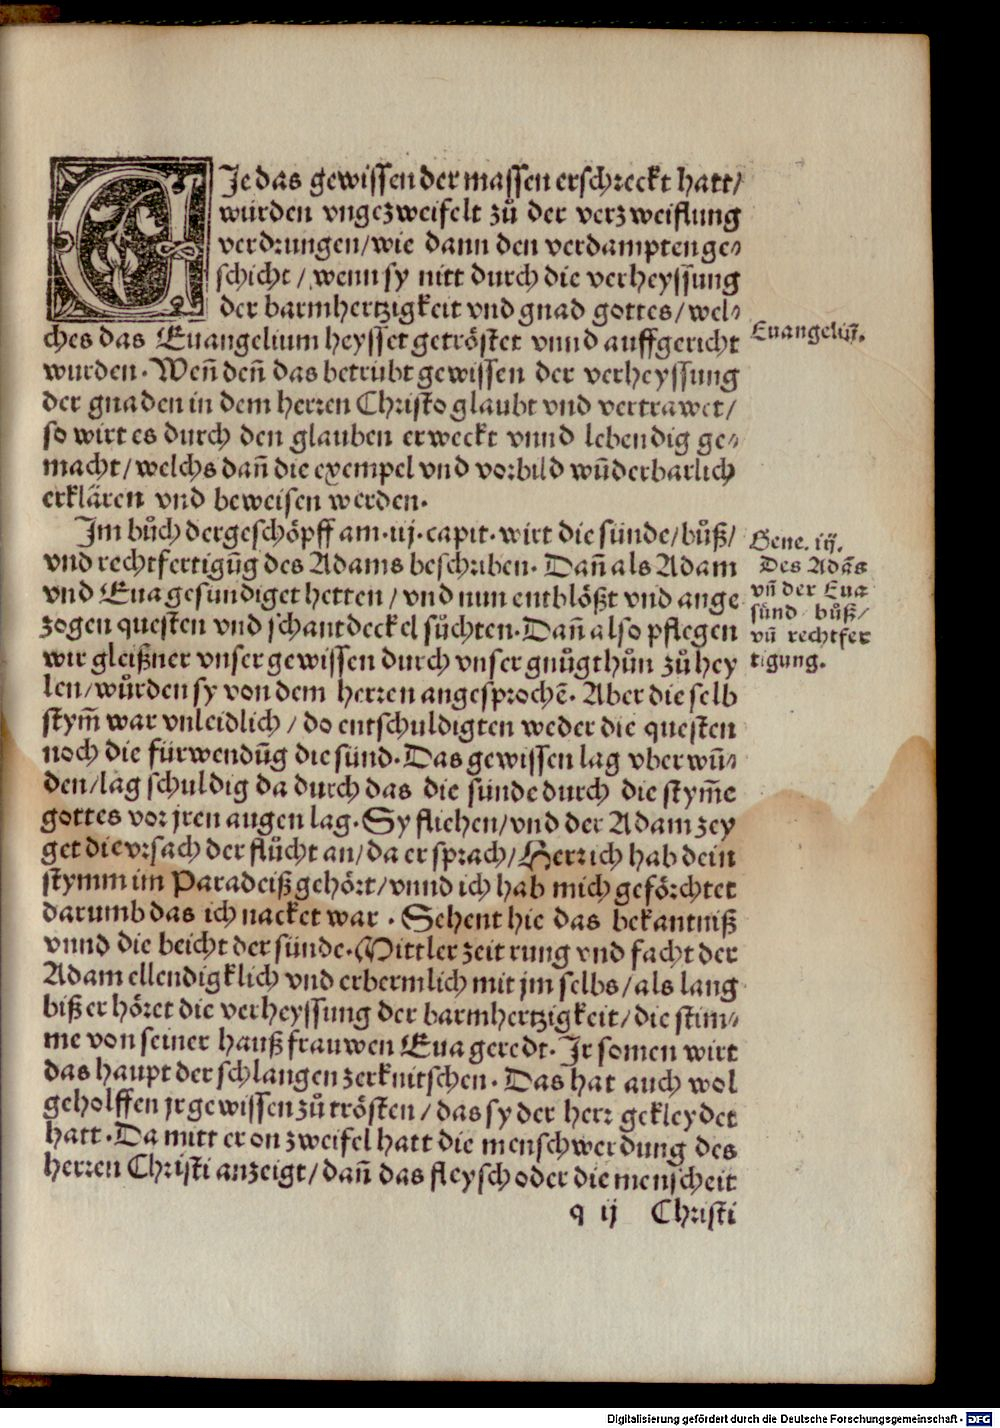 DJe das gewissen der massen erschreckt hatt/
wurden vngezweifelt zů der verzweiflung
verdrungen/wie dann den verdampten ge⸗
schicht/wenn sy nitt durch die verheyssung
der barmhertzigkeit vnd gnad gottes/wel⸗
ches das Euangelium heysset getröstet vnnd auffgericht
wurden. Weñ deñ das betrubt gewissen der verheyssung
der gnaden in dem herren Christo glaubt vnd vertrawet/
so wirt es durch den glauben erweckt vnnd lebendig ge⸗
macht/welchs dañ die exempel vnd vorbild wũderbarlich
erklären vnd beweisen werden.
Euangeliũ.
Jm bůch der geschöpff am .iij. capit. wirt die sünde/bůß/
vnd rechtfertigũg des Adams beschriben. Dañ als Adam
vnd Eua gesündiget hetten/vnd nun entblößt vnd ange
zogen questen vnd schantdeckel sůchten. Dañ also pflegen
wir gleißner vnser gewissen durch vnser gnůgthůn zů hey
len/wůrden sy von dem herren angesprochẽ. Aber die selb
stym̃ war vnleidlich/do entschuldigten weder die questen
noch die fürwendũg die sünd. Das gewissen lag vberwũ⸗
den/lag schuldig da durch das die sünde durch die stym̃e
gottes vor jren augen lag. Sy fliehen/vnd der Adam zey
get die vrsach der flůcht an/da er sprach/Herr ich hab dein
stymm im Paradeiß gehört/vnnd ich hab mich geförchtet
darumb das ich nacket war. Sehent hie das bekantniß
vnnd die beicht der sünde. Mittler zeit rung vnd facht der
Adam ellendigklich vnd erbermlich mit jm selbs/als lang
biß er höret die verheyssung der barmhertzigkeit/die stim⸗
me von seiner haußfrauwen Eua geredt. Jr somen wirt
das haupt der schlangen zerknitschen. Das hat auch wol
geholffen jr gewissen zů trösten/das sy der herr gekleydet
hatt. Da mitt er on zweifel hatt die menschwerdung des
herren Christi anzeigt/dañ das fleysch oder die menscheit
Gene. iij.
Des Adãs
vñ der Eua
sünd bůß/
vñ rechtfer
tigung.
q ij Christi
Digitalisierung gefördert durch die Deutsche Forschungsgemeinschaft - DFG